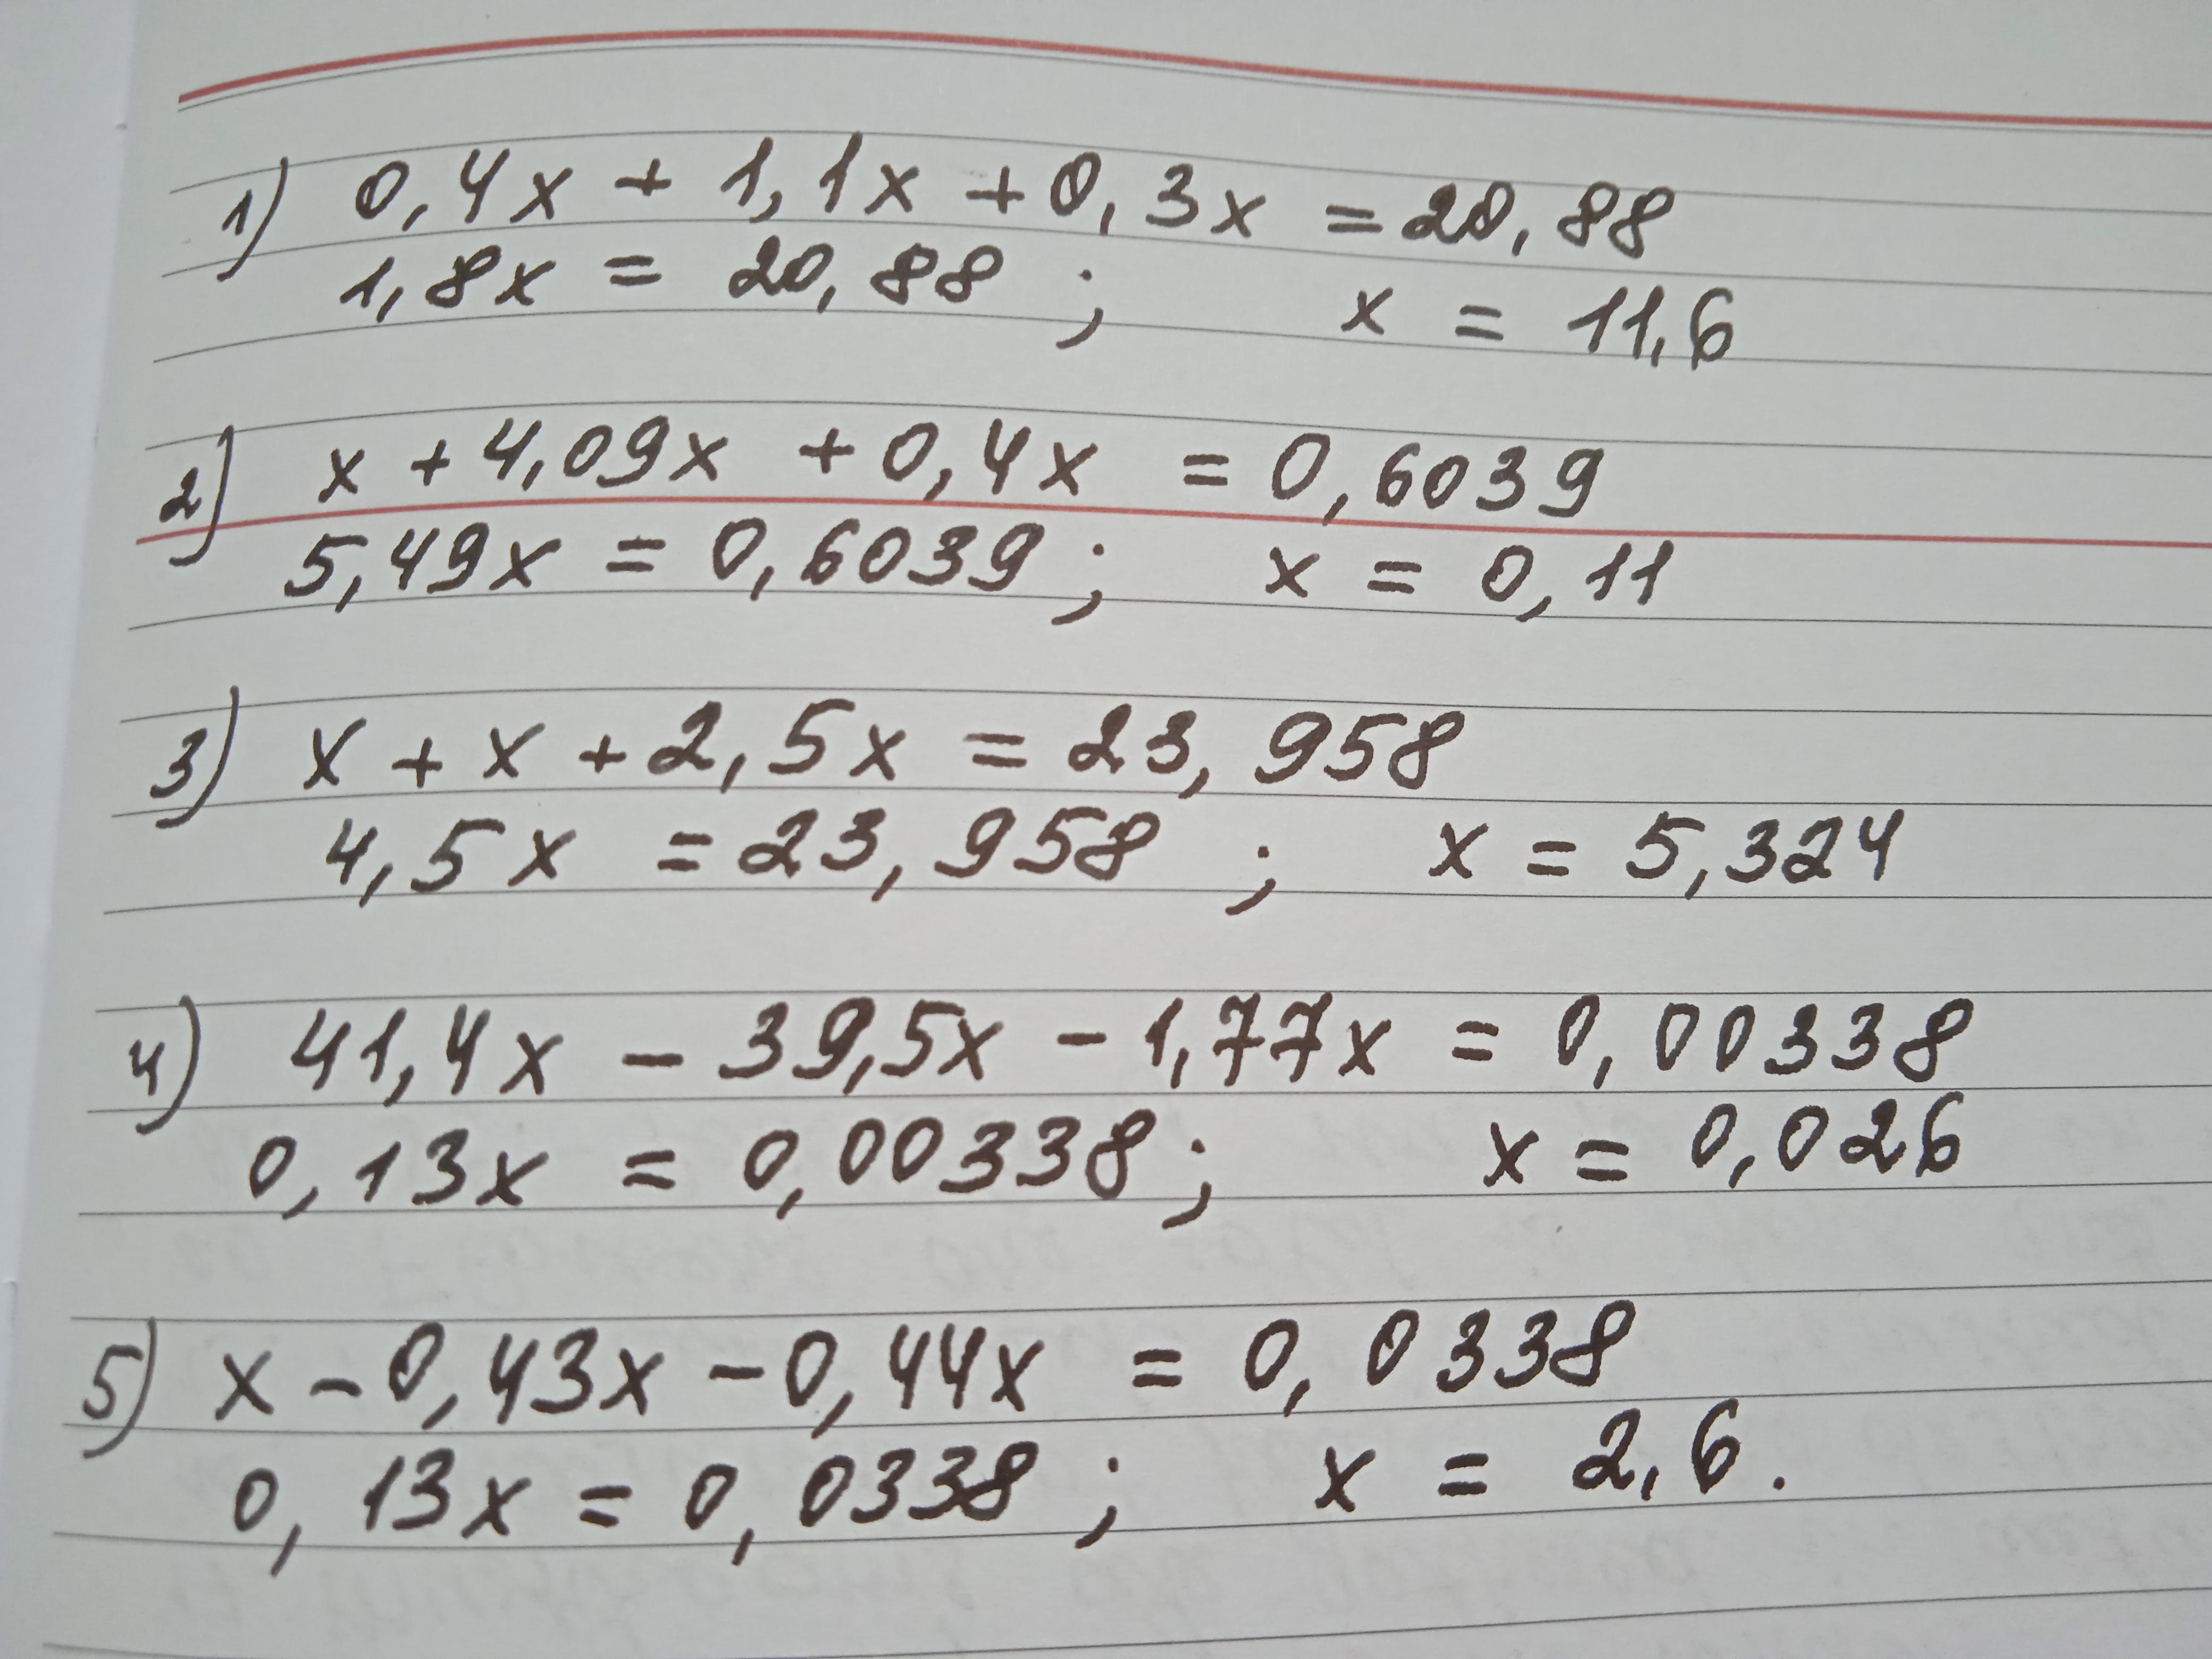 1) 0,4x + 1,1x + 0,3x = 20,88
1,8x = 20,88 ; x = 11,6
2) x + 4,09x + 0,4x = 0,6039
5,49x = 0,6039 ; x = 0,11
3) x + x + 2,5x = 23,958
4,5x = 23,958 ; x = 5,324
4) 41,4x - 39,5x - 1,77x = 0,00338
0,13x = 0,00338 ; x = 0,026
5) x - 0,43x - 0,44x = 0,0338
0,13x = 0,0338 ; x = 2,6.